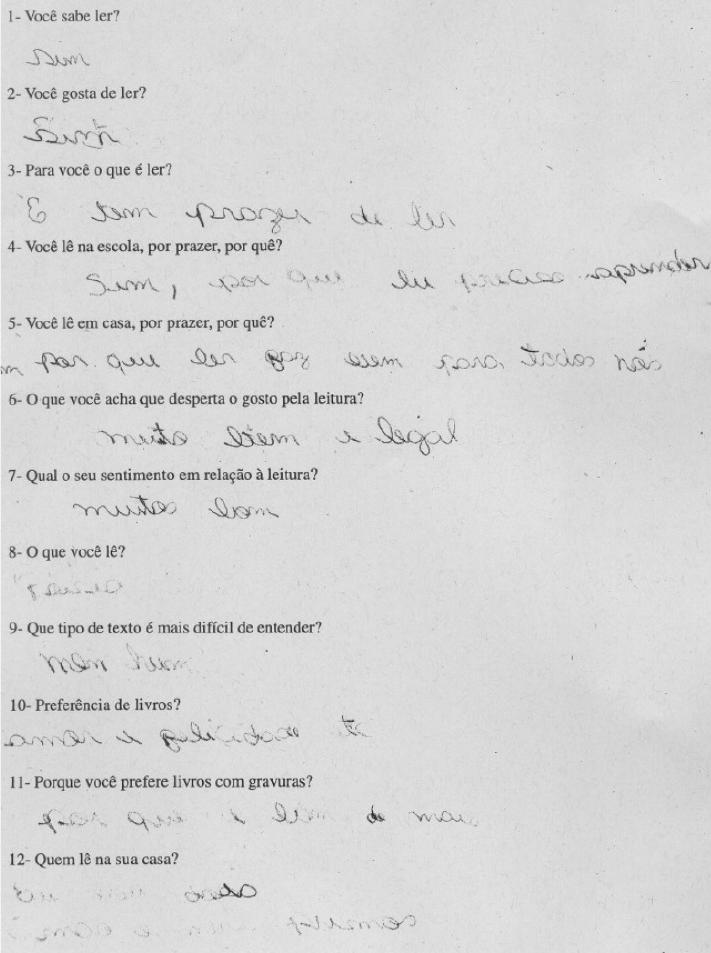 1- Você sabe ler?
Sim
2- Você gosta de ler?
Sim
3- Para você o que é ler?
E tem prazer de ler
4- Você lê na escola, por prazer, por quê?
Sim, por que eu preciso aprender
5- Você lê em casa, por prazer, por quê?
por que ler faz bem para todos nós
6- O que você acha que desperta o gosto pela leitura?
muito bem e legal
7- Qual o seu sentimento em relação à leitura?
muito bom
8- O que você lê?
9- Que tipo de texto é mais difícil de entender?
nen hum
10- Preferência de livros?
amor e felicidade
11- Porque você prefere livros com gravuras?
por que é bem de mais
12- Quem lê na sua casa?